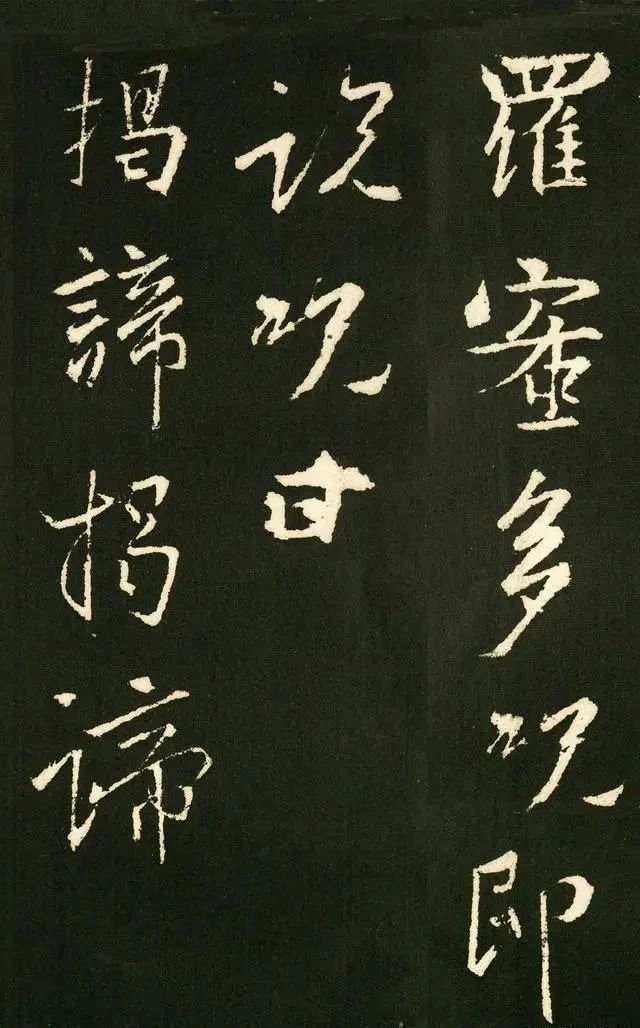 羅蜜多呪即
說呪曰
揭諦揭諦